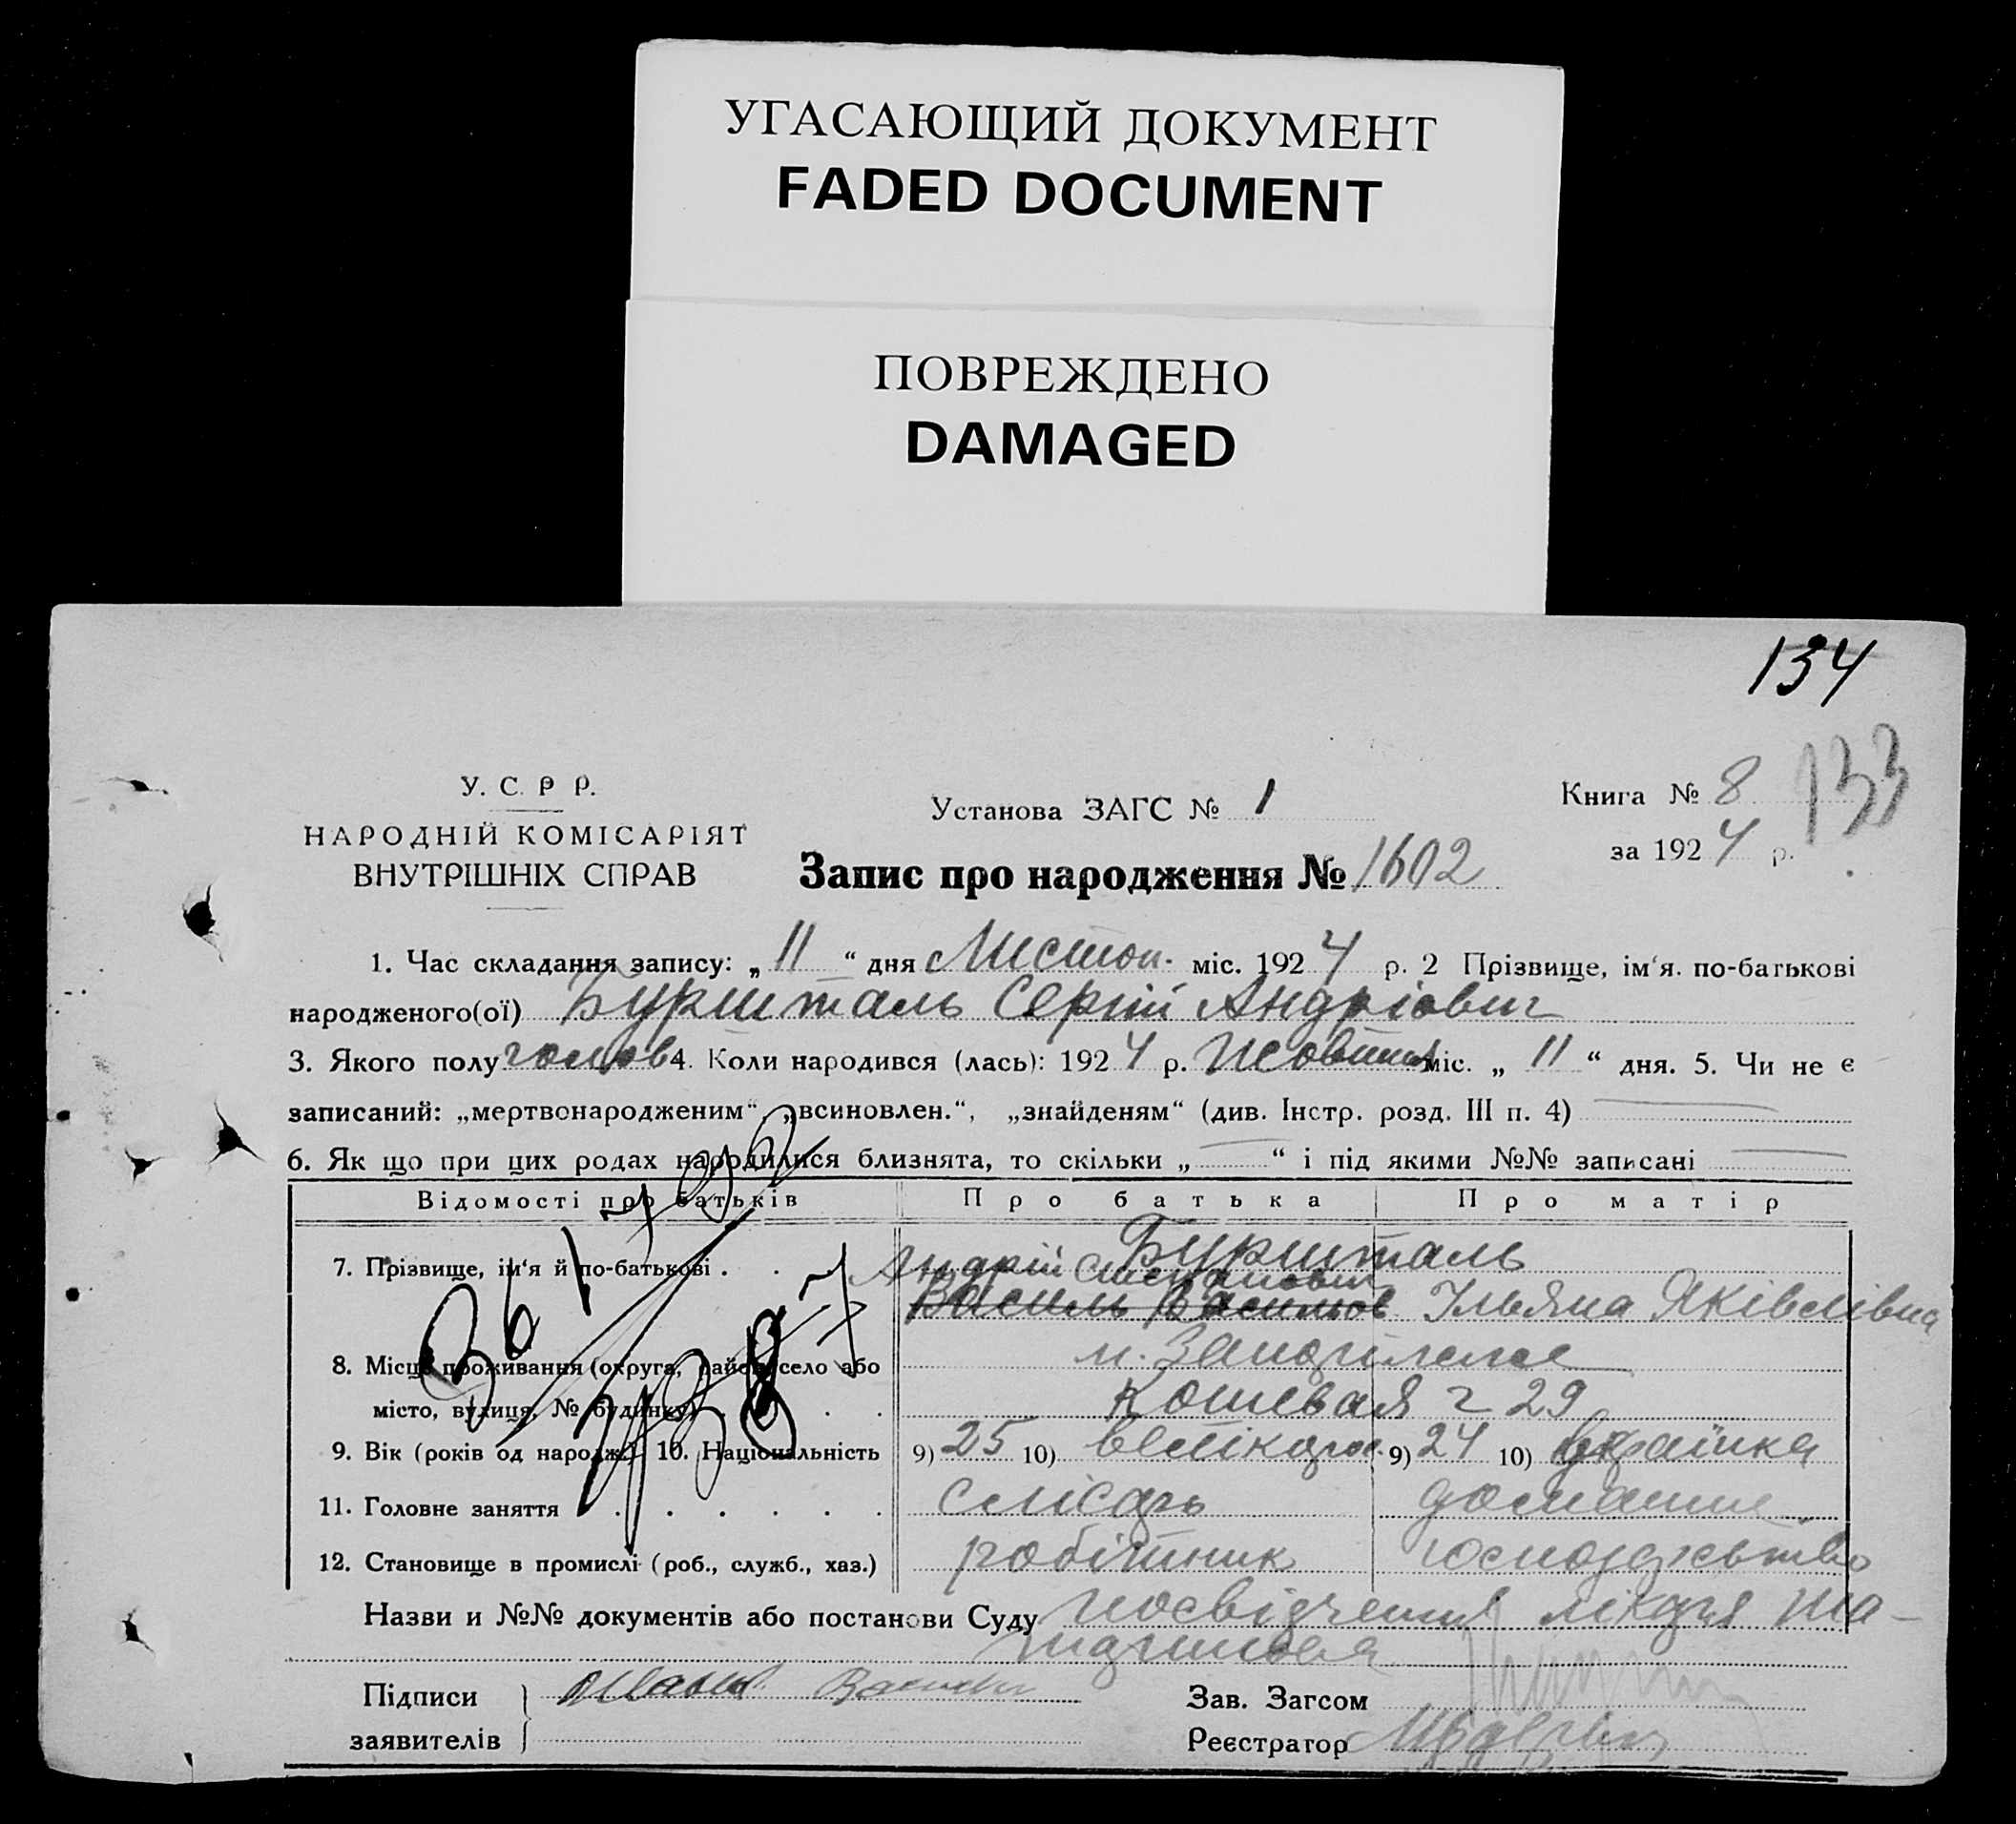 УГАСАЮЩИЙ ДОКУМЕНТ
FADED DOCUMENT
ПОВРЕЖДЕНО
DAMAGED
134
133
У. С. Р Р.
НАРОДНІЙ КОМІСАРІЯТ
ВНУТРІШНІХ СПРАВ
Установа ЗАГС № 1
Книга № 8
за 1924 р.
Запис про народження № 1602
1. Час складання запису: „ 11 “ дня Листоп. міс. 1924 р. 2 Прізвище, ім‘я. по-батькові
народженого(ої) Буршталь Сергій Андріович
3. Якого полу 4. Коли народився (лась): 1924 р. Жовтня міс. „ 11 “ дня. 5. Чи не є
записаний: „мертвонародженим“, „всиновлен.“, „знайденям“ (див. Інстр. розд. III п. 4)
6. Як що при цих родах народилися близнята, то скільки „ “ і під якими №№ записані
Відомості про батьків Про батька Про матір
7. Прізвище, ім‘я й по-батькові . . Буршталь
Андрій Степанович
Василь Васильов Ільяна Яківлівна
8. Місце проживання (округа, район, село або м. Запоріжже
місто, вулиця, № будинку) . . . Кошевая 29
9. Вік (років од народж.) 10. Національність 9) 25 10) 9) 24 10) українка
11. Головне заняття . . . . . . слюсарь домашнє
12. Становище в промислі (роб., служб., хаз.) робітник господарьство
Назви и №№ документів або постанови Суду посвідчення лікаря
Підписи
заявителів
Зав. Загсом
Реєстратор